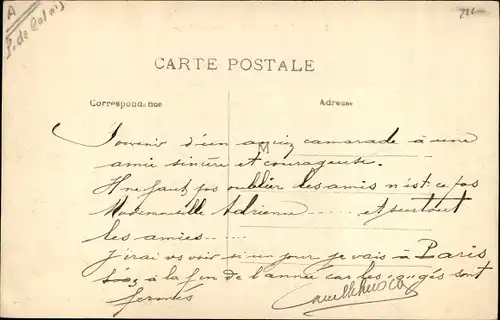 A
P. de Calais
CARTE POSTALE
Correspondance
Adresse
M
Souvenir d'un ancien camarade à une
amie sincère et courageuse.
Il ne faut pas oublier les amis n'est-ce pas
Mademoiselle Adrienne ..... et surtout
les amies .....
J'irai vs voir si un jour je vais à Paris
à la fin de l'année car les congés sont
fermés